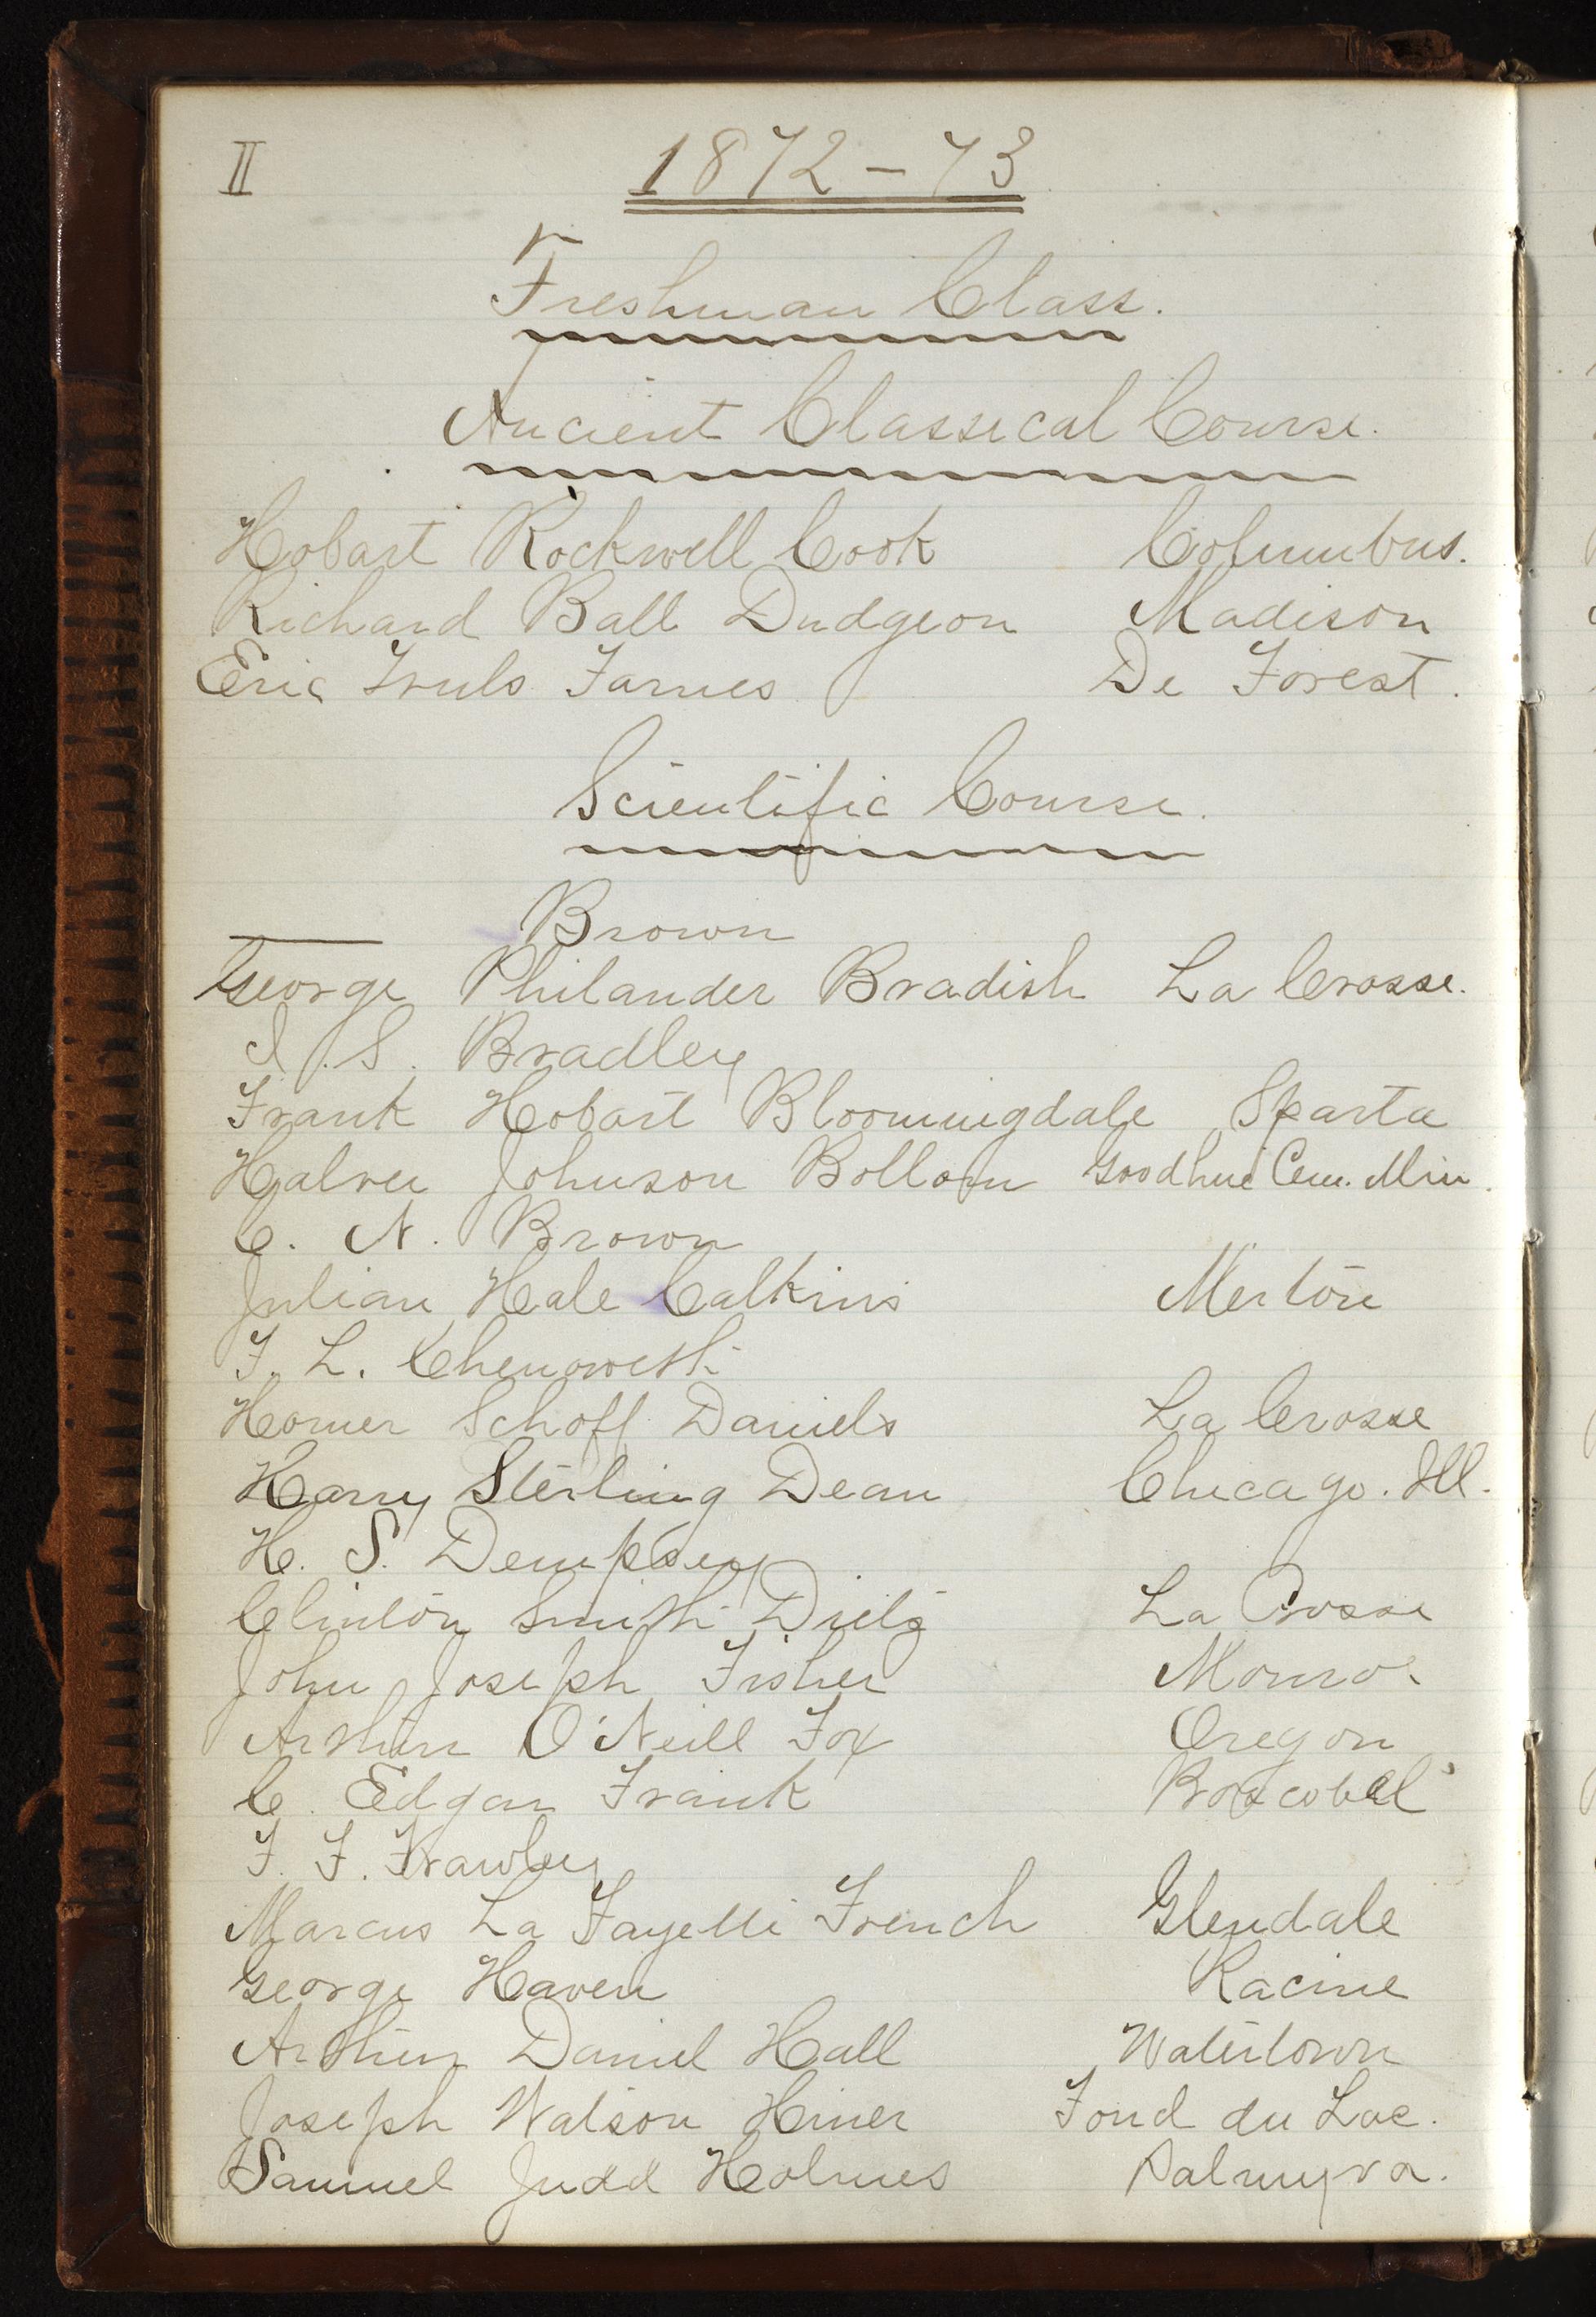 II
1872-73
Freshman Class.
Ancient Classical Course.
Hobart Rockwell Cook Columbus.
Richard Ball Dudgeon Madison
Eric Truls Farnes De Forest.
Scientific Course.
Brown
George Philander Bradish La Crosse.
I. S. Bradley
Frank Hobart Bloomingdale Sparta
Halver Johnson Bollom Goodhue Min.
C. N. Brown
Julian Hale Calkins Merton
F. L. Chenoweth
Homer Schoff Daniels La Crosse
Harry Sterling Dean Chicago. Ill.
H. S. Dempsey
Clinton Smith La Crosse
John Joseph Fisher Monroe
Arthur O'Neill Fox Oregon
C. Edgar Frank Boscobel
F. F. Frawley
Marcus La Fayette French Glendale
George Haven Racine
Arthur Daniel Hall Watertown
Joseph Watson Hiner Fond du Lac.
Samuel Judd Holmes Palmyra.